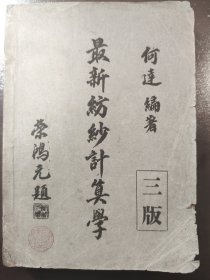 何達編著
三版
最新紡紗計算學
榮鴻元題